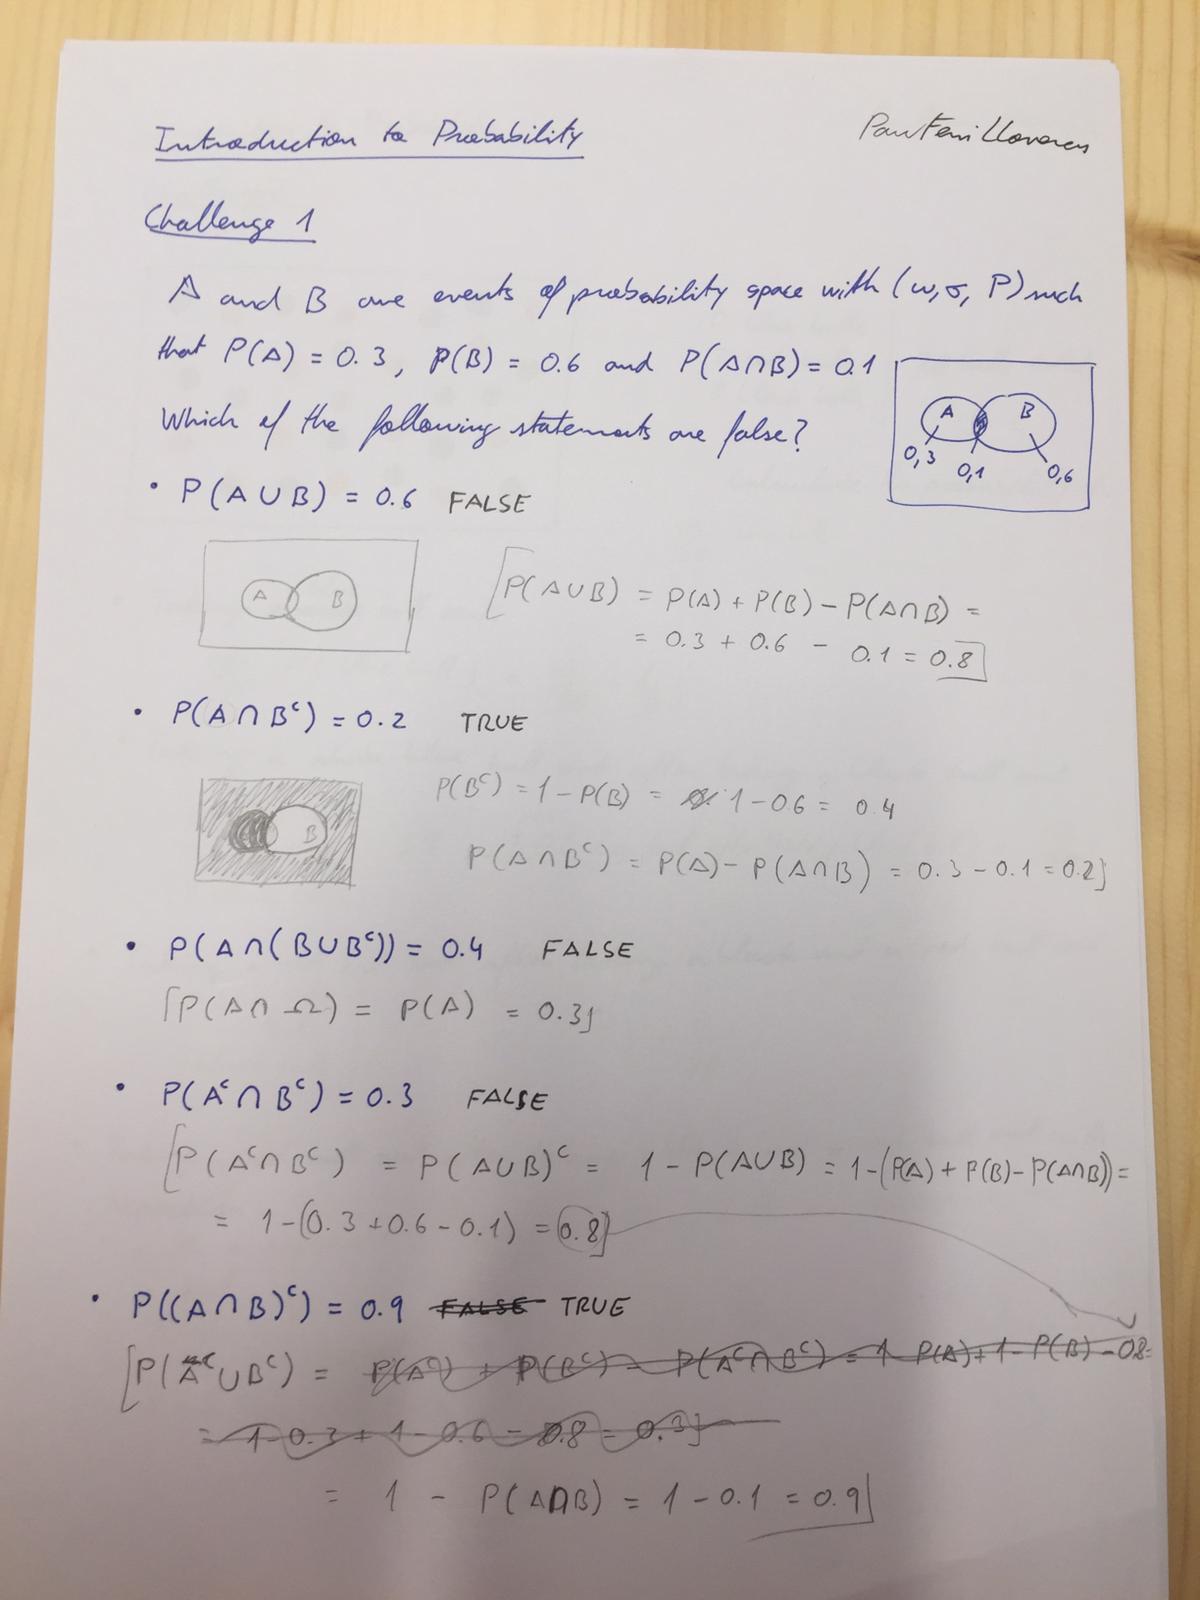 Introduction to Probability
Challenge 1
A and B are events of probability space with (ω, σ, P) such
that P(A) = 0.3, P(B) = 0.6 and P(A∩B) = 0.1
Which of the following statements are false?
A B
0,3 0,1 0,6
• P(A∪B) = 0.6 FALSE
A B
[P(A∪B) = P(A) + P(B) − P(A∩B) =
= 0.3 + 0.6 − 0.1 = 0.8]
• P(A∩Bᶜ) = 0.2 TRUE
B
P(Bᶜ) = 1 − P(B) = 1 − 0.6 = 0.4
P(A∩Bᶜ) = P(A) − P(A∩B) = 0.3 − 0.1 = 0.2]
• P(A∩(B∪Bᶜ)) = 0.4 FALSE
[P(A∩Ω) = P(A) = 0.3]
• P(Aᶜ∩Bᶜ) = 0.3 FALSE
[P(Aᶜ∩Bᶜ) = P(A∪B)ᶜ = 1 − P(A∪B) = 1 − (P(A) + P(B) − P(A∩B)) =
= 1 − (0.3 + 0.6 − 0.1) = 0.8]
• P((A∩B)ᶜ) = 0.9 FALSE TRUE
[P(Aᶜ∪Bᶜ) = P(Aᶜ) + P(Bᶜ) − P(Aᶜ∩Bᶜ) = 1 − P(A) + 1 − P(B) − 0.8 =
= 1 − 0.3 + 1 − 0.6 − 0.8 = 0.3]
= 1 − P(A∩B) = 1 − 0.1 = 0.9]